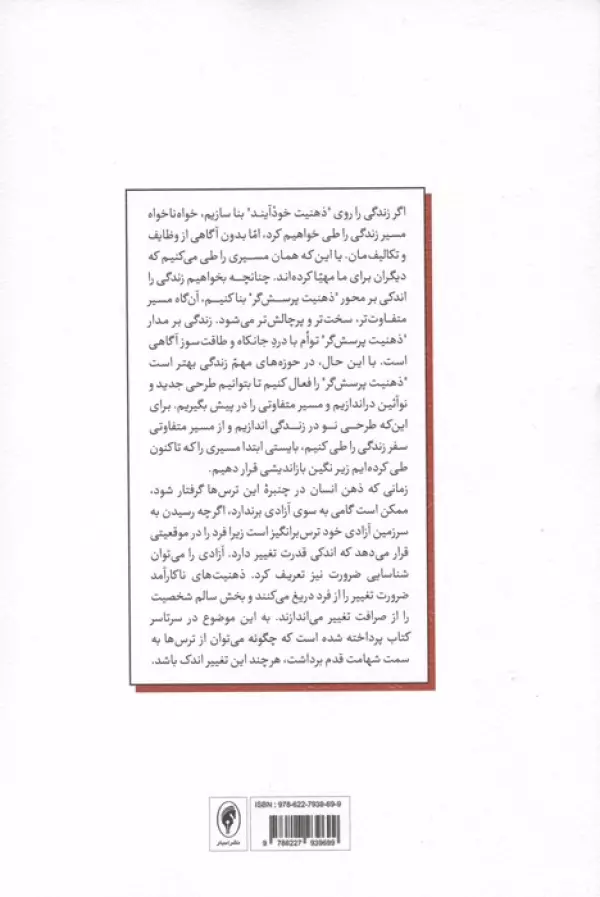 اگر زندگی را روی "ذهنیت خودآیند" بنا سازیم، خواه‌ناخواه
مسیر زندگی را طی خواهیم کرد، امّا بدون آگاهی از وظایف
و تکالیف‌مان. یا این‌که همان مسیری را طی می‌کنیم که
دیگران برای ما مهیّا کرده‌اند. چنانچه بخواهیم زندگی را
اندکی بر محور "ذهنیت پرسش‌گر" بنا کنیم، آن‌گاه مسیر
متفاوت‌تر، سخت‌تر و پرچالش‌تر می‌شود. زندگی بر مدار
"ذهنیت پرسش‌گر" توأم با دردِ جانکاه و طاقت‌سوز آگاهی
است. با این حال، در حوزه‌های مهمّ زندگی بهتر است
"ذهنیت پرسش‌گر" را فعال کنیم تا بتوانیم طرحی جدید و
نوآئین دراندازیم و مسیر متفاوتی را در پیش بگیریم. برای
این‌که طرحی نو در زندگی اندازیم و از مسیر متفاوتی
سفر زندگی را طی کنیم، بایستی ابتدا مسیری را که تاکنون
طی کرده‌ایم زیر نگین بازاندیشی قرار دهیم.
زمانی که ذهن انسان در چنبرهٔ این ترس‌ها گرفتار شود،
ممکن است گامی به سوی آزادی برندارد، اگرچه رسیدن به
سرزمین آزادی خود ترس‌برانگیز است زیرا فرد را در موقعیتی
قرار می‌دهد که اندکی قدرت تغییر دارد. آزادی را می‌توان
شناسایی ضرورت نیز تعریف کرد. ذهنیت‌های ناکارآمد
ضرورت تغییر را از فرد دریغ می‌کنند و بخش سالم شخصیت
را از صرافت تغییر می‌اندازند. به این موضوع در سرتاسر
کتاب پرداخته شده است که چگونه می‌توان از ترس‌ها به
سمت شهامت قدم برداشت، هرچند این تغییر اندک باشد.
ISBN : 978-622-7938-69-9
9 786227 938699